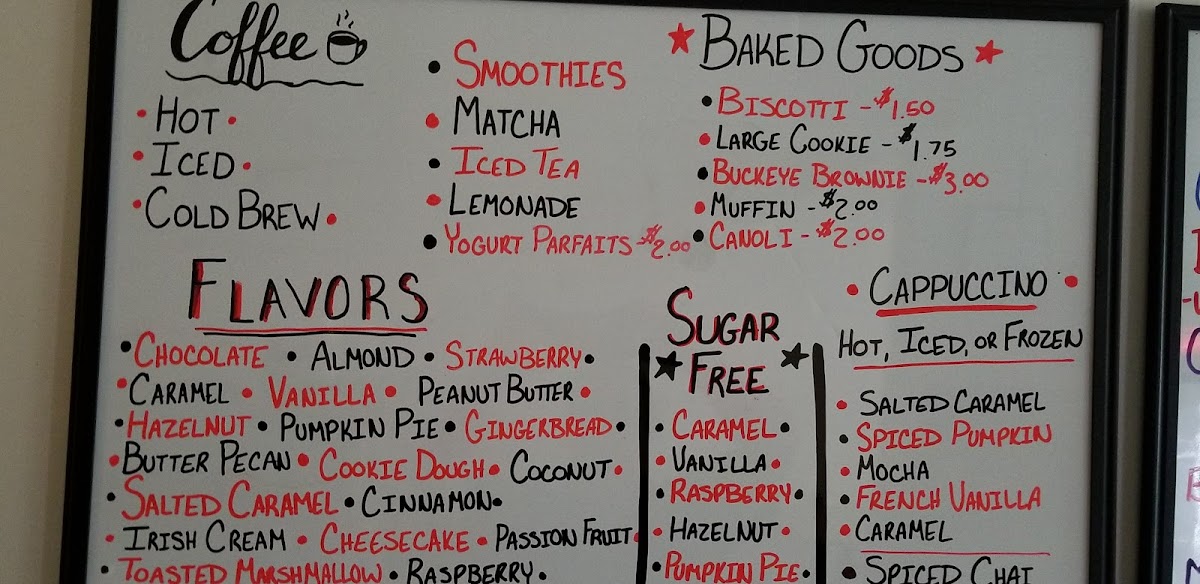 Coffee
• HOT •
• ICED •
• COLD BREW •
• SMOOTHIES
• MATCHA
• ICED TEA
• LEMONADE
• YOGURT PARFAITS - $2.00
★ BAKED GOODS ★
• BISCOTTI - $1.50
• LARGE COOKIE - $1.75
• BUCKEYE BROWNIE - $3.00
• MUFFIN - $2.00
• CANOLI - $2.00
FLAVORS
• CHOCOLATE • ALMOND • STRAWBERRY •
• CARAMEL • VANILLA • PEANUT BUTTER •
• HAZELNUT • PUMPKIN PIE • GINGERBREAD •
• BUTTER PECAN • COOKIE DOUGH • COCONUT •
• SALTED CARAMEL • CINNAMON •
• IRISH CREAM • CHEESECAKE • PASSION FRUIT •
• TOASTED MARSHMALLOW • RASPBERRY •
SUGAR
★ FREE ★
• CARAMEL •
• VANILLA •
• RASPBERRY •
• HAZELNUT •
• PUMPKIN PIE •
• CAPPUCCINO •
HOT, ICED, OR FROZEN
• SALTED CARAMEL
• SPICED PUMPKIN
• MOCHA
• FRENCH VANILLA
• CARAMEL
• SPICED CHAI